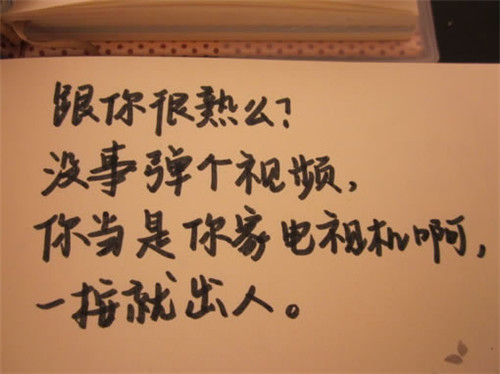 跟你很熟么?
没事弹个视频,
你当是你家电视机啊,
一按就出人。